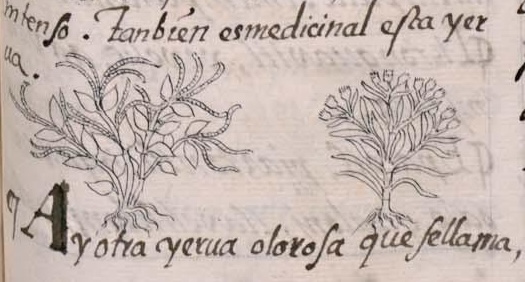 intenso. Tanbièn es medicinal esta yer
ua.
¶ Ay otra yerua olorosa que se llama,